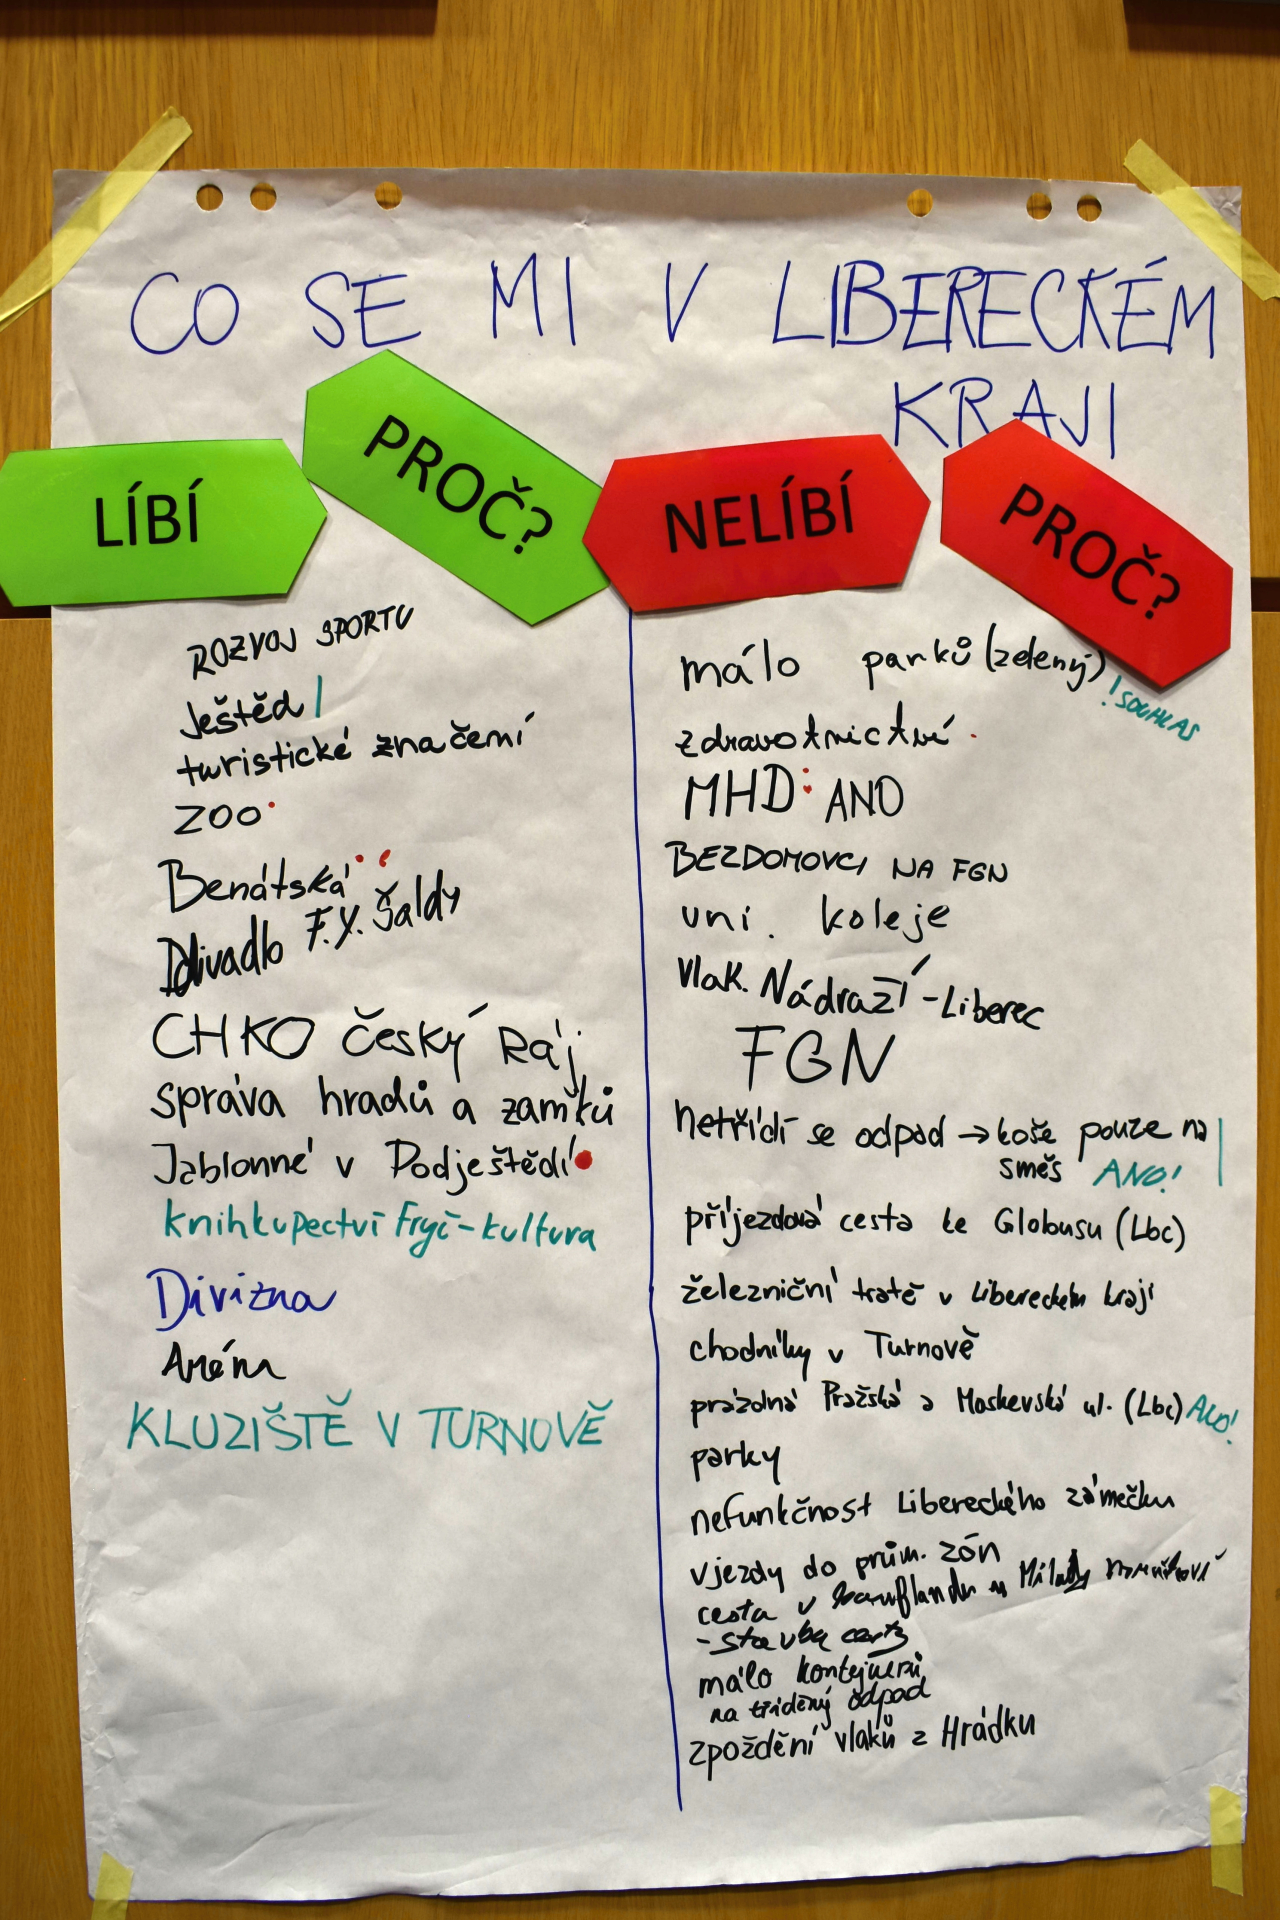 CO SE MI V LIBERECKÉM
KRAJI
LÍBÍ
PROČ?
NELÍBÍ
PROČ?
ROZVOJ SPORTU
Ještěd
turistické značení
ZOO
Benátská
Divadlo F.X. Šaldy
CHKO Český Ráj
správa hradů a zámků
Jablonné v Podještědí
knihkupectví Fryč-kultura
Divizna
Aréna
KLUZIŠTĚ V TURNOVĚ
málo parků (zelený)
! SOUHLAS
zdravotnictví
MHD: ANO
BEZDOMOVCI NA FGN
uni. koleje
vlak. Nádraží - Liberec
FGN
netřídí se odpad → koše pouze na
směs ANO!
příjezdová cesta ke Globusu (Lbc)
železniční tratě v Libereckém kraji
chodníky v Turnově
prázdná Pražská a Moskevská ul. (Lbc) ANO!
parky
nefunkčnost Libereckého zámečku
vjezdy do prům. zón
cesta u Milady
- stavba cesty
málo kontejnerů
na tříděný odpad
zpoždění vlaků z Hrádku